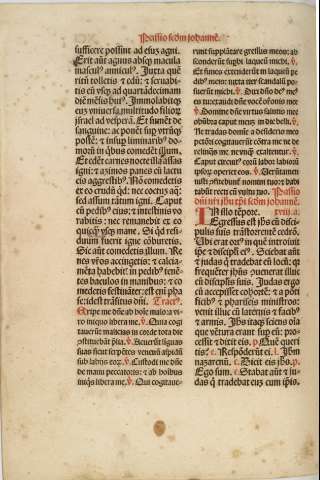 Passio scdm Johanne.
sufficere possint ad esuz agni.
Erit aūt agnus absq; macula
mascul⁹ anniculus. Juxta quē
ritū tolletis & edū: & servabi-
tis eū vsq; ad quartadecimam
diē mēsis hui⁹. Immolabitq;
eū vniuersa multitudo filioꝝ
israel ad vesperā. Et sument de
sanguine: ac ponēt sup vtrūq;
postē: & in sup liminarib⁹ do-
moꝝ in qbus comedēt illum.
Et edēt carnes nocte illa assas
igni: & azimos panes cū lactu
cis agrestib⁹. Nō comedetis
ex eo crudū qd: nec coctuz aq:
sed assum tātum igni. Caput
cū pedib⁹ eius: & intestinis vo
rabitis: nec remanebit ex eo
quicq; vsq; mane. Si qd resi-
duum fuerit igne cōburetis.
Sic aūt comedetis illum. Re
nes vr̄os accingetis: & calcia-
mēta habebit⁹ in pedib⁹ tenē-
tes baculos in manibus: & co
medetis festinanter: est eni pha
se: idest trāsitus dn̄i. Tract⁹.
Eripe me dn̄e ab hoīe malo: a vi-
ro iniquo libera me. ℣. Qui cogi
tauerūt malicias in corde: tota die
cōstituebāt p̄lia. ℣. Acuerūt liguas
suas sicut serpētes: venenū aspidū
sub labijs eoꝝ. ℣. Custodi me dn̄e
de manu peccatoris: & ab hoībus
iniqs libera me. ℣. Qui cogitaue-
runt supplātare gressus meos: ab
sconderūt supbi laqueū michi. ℣.
Et funes extenderūt in laqueū pe
dib⁹ meis: iuxta iter scandalū po-
suerūt michi. ℣. Dixi dn̄o de⁹ me⁹
es tu: exaudi dn̄e vocē orōnis mee
℣. Domine dn̄e virtus salutis mee
obūbra caput meuz in die belli. ℣.
Ne tradas domīe a desiderio meo
pctōri: cogitauerūt cōtra me ne de
relinq̄s me: neq̄n̄ exaltentur. ℣.
Caput circuit⁹ eoꝝ labor labioꝝ
ipsoꝝ operiet eos. ℣. Verūtamen
iusti cōfitebunt̄ nomini tuo: & habi
tabūt recti cū vultu tuo. Passio
dn̄i nr̄i jhu xp̄i scdm johannem.
In illo tēpore. xviii. a.
Egressus est jhs cū disci-
pulis suis trās torrentē cedrō.
Vbi erat ort⁹ in quē introiuit
ip̄e & discipli ei⁹. Sciebat aūt
& iudas q̄ tradebat eū locū: qr
frequēter jhūs venerat illuc
cū discipulis suis. Judas ergo
cū accepisset cohortē: & a pōti
ficib⁹ & phariseis ministros:
venit illuc cū laternis & facib⁹
& armis. Jhūs itaq; sciens oīa
que vētura erant sup eū: pro-
cessit & dicit eis. p. Quē queri
tis: c. Respōderūt ei. l. Jhm
nazarenū. c. Dicit eis jhs. p.
Ego sum. c. Stabat aūt & ju-
das q̄ tradebat eū cum ip̄is.